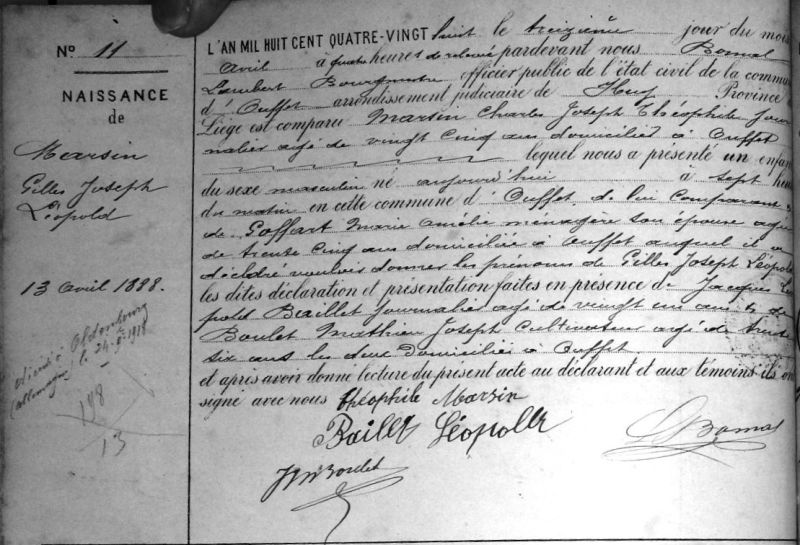 N° 11
NAISSANCE
de
Marsin
Gilles Joseph
Léopold
13 avril 1888.
décédé à Oldenbourg
(allemagne) le 24-8-1918
198
13
L'AN MIL HUIT CENT QUATRE-VINGT huit le treizième jour du mois
avril à quatre heures de relevée pardevant nous Bomal
Lambert Bourgmestre officier public de l'état civil de la commu
d'Ouffet arrondissement judiciaire de Huy Province
Liège est comparu Marsin Charles Joseph Théophile Jour
nalier agé de vingt cinq ans domicilié à Ouffet
lequel nous a présenté un enfan
du sexe masculin né aujourd'hui à sept heu
du matin en cette commune d'Ouffet de lui comparant &
de Goffart Marie Amélie ménagère son épouse agée
de trente cinq ans domiciliée à Ouffet auquel il a
déclaré vouloir donner les prénoms de Gilles Joseph Léopold
les dites déclaration et présentation faites en présence de Jacques Léo
pold Baillet Journalier agé de vingt un ans & de
Boulet Mathieu Joseph Cultivateur agé de trente
six ans les deux domiciliés à Ouffet
et après avoir donné lecture du présent acte au déclarant et aux témoins ils on
signé avec nous Théophile Marsin
Baillet Léopold
L Bomal
JM Boulet